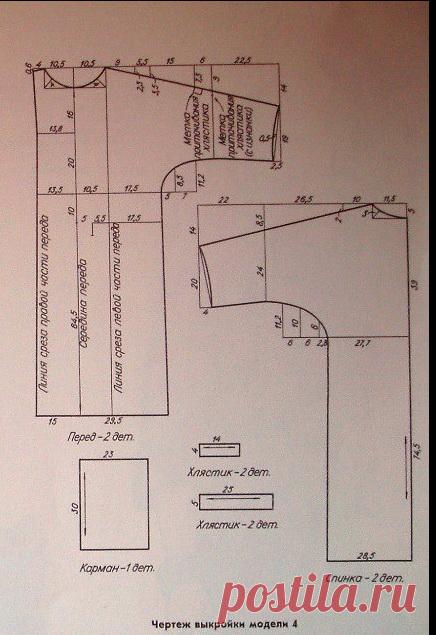 0,6 4 10,5 10,5 9 5,5 15 6 22,5
2,5 5,5 7,5 9 14
16 13,8 20
Метка
притачивания
хлястика
Метка
притачивания
хлястика
(с изнанки)
0,5 19 2,5
13,5 10,5 17,5 5 7 8,5 11,2
10 5 5,5 17,5
Линия среза правой части переда
Середина переда
64,5
Линия среза левой части переда
15 29,5
Перед-2 дет.
22 26,5 10 11,5
14 8,5 2 3 5
20 24 39
4
11,2 10 6
6 6 2,8 27,7
74,5
28,5
Спинка-2 дет.
14
4
Хлястик-2 дет.
25
5
Хлястик-2 дет.
23
30
Карман-1 дет.
Чертеж выкройки модели 4
postila.ru